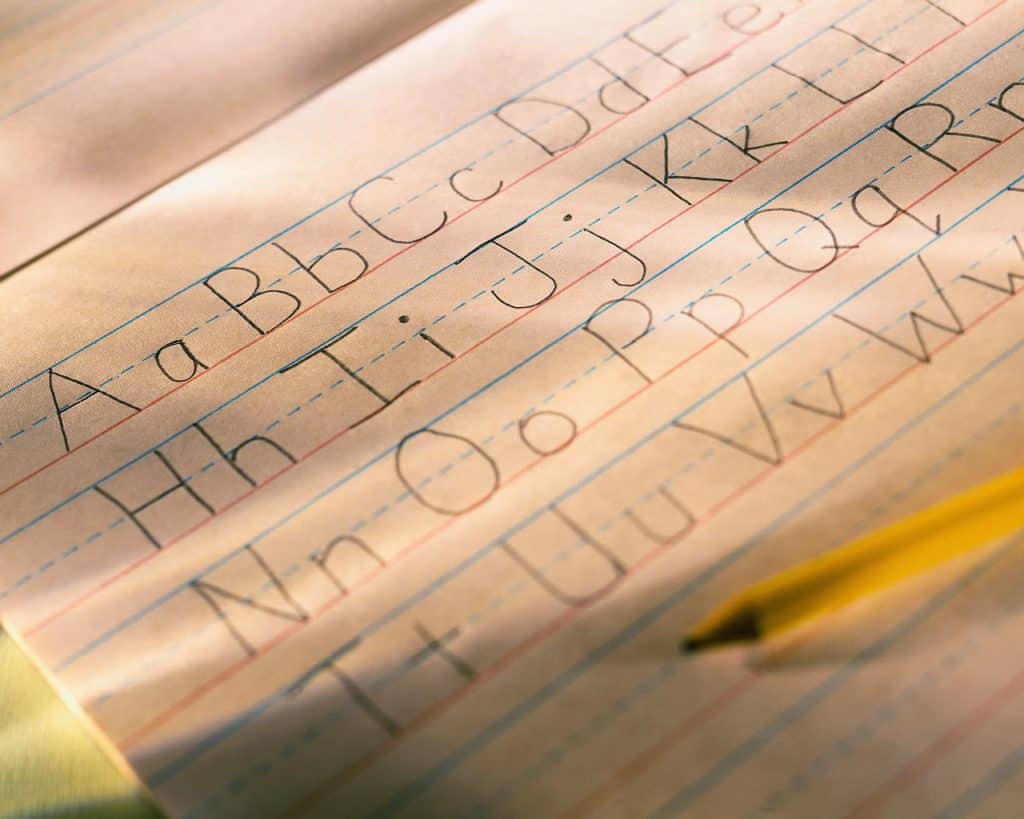 Aa Bb Cc Dd Ee
Hh Ii Jj Kk Ll
Nn Oo Pp Qq R
Tt Uu Vv Ww